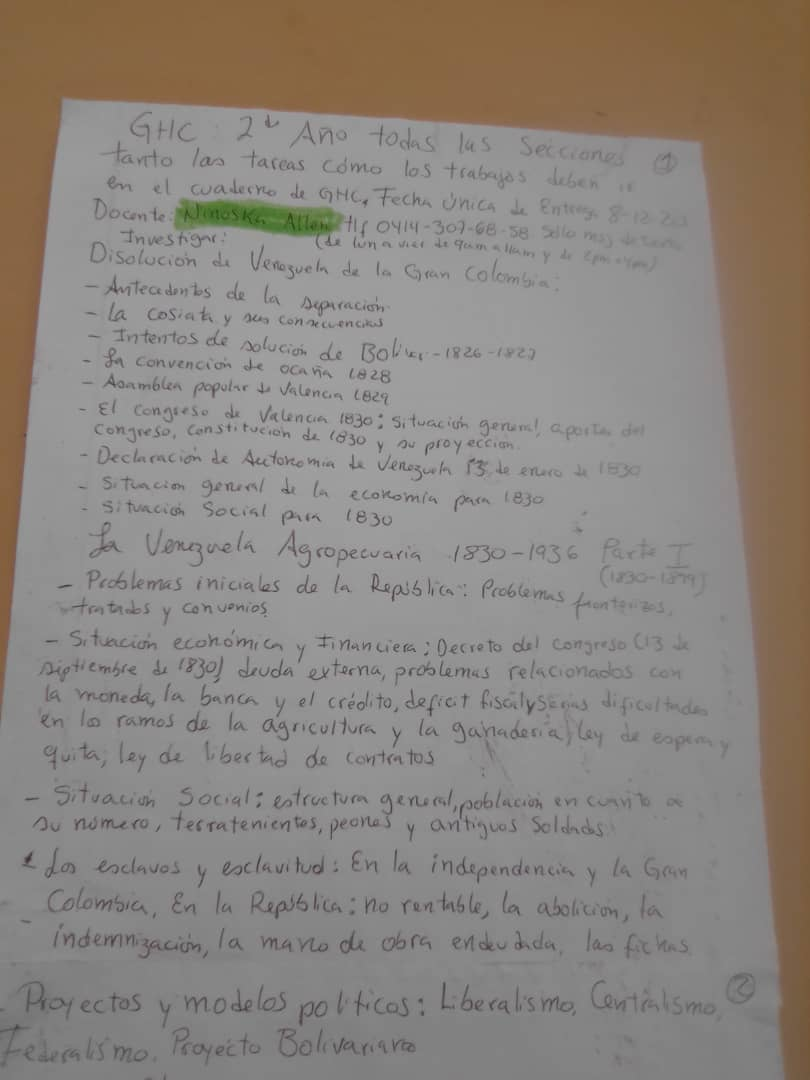 GHC: 2do Año todas las Secciones ①
tanto las tareas como los trabajos deben ir
en el cuaderno de GHC, Fecha Única de Entrega 8-12-
Docente: Ninoska Allen tlf 0414-307-68-58. Sólo msj de texto
Investigar: (de lun a vier de 9am a 11am y de 2pm a 4pm)
Disolución de Venezuela de la Gran Colombia:
- Antecedentes de la separación.
- La Cosiata y sus consecuencias
- Intentos de solución de Bolívar - 1826-1827
- La convención de ocaña 1828
- Asamblea popular de Valencia 1829
- El congreso de Valencia 1830: situación general, aportes del
congreso, constitución de 1830 y su proyección.
- Declaración de Autonomía de Venezuela 13 de enero de 1830
- Situacion general de la economía para 1830
- Situación Social para 1830
La Venezuela Agropecuaria 1830-1936 Parte I
(1830-1899)
- Problemas iniciales de la República: Problemas fronterizos,
tratados y convenios
- Situación económica y Financiera; Decreto del congreso (13 de
septiembre de 1830) deuda externa, problemas relacionados con
la moneda, la banca y el crédito, deficit fiscal, dificultades
en los ramos de la agricultura y la ganadería, ley de espera y
quita, ley de libertad de contratos
- Situación Social: estructura general, población en cuanto a
su número, terratenientes, peones y antiguos Soldados.
- Los esclavos y esclavitud: En la independencia y la Gran
Colombia, En la República: no rentable, la abolición, la
indemnización, la mano de obra endeudada, las fichas.
- Proyectos y modelos políticos: Liberalismo, Centralismo, ②
Federalismo. Proyecto Bolivariano